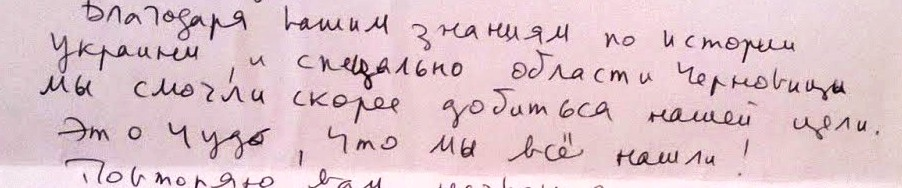 Благодаря вашим знаниям по истории
Украины, и спецально области Черновицы
мы смогли скорее добиться нашей цели.
Это чудо, что мы всё нашли!
Повторяю вам